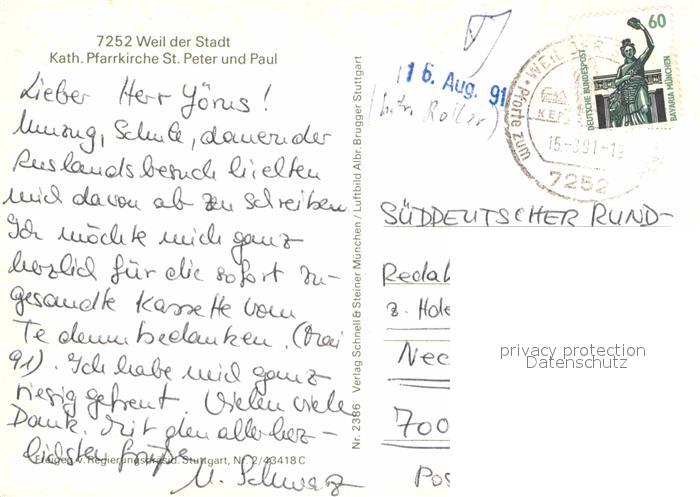 7252 Weil der Stadt
Kath. Pfarrkirche St. Peter und Paul
Lieber Herr Yörns!
Umzug, Schule, dauernder
Auslandsbesuch hielten
mich davon ab zu schreiben
Ich möchte mich ganz
herzlich für die sofort zu-
gesandte Kassette vom
Te deum bedanken. (Mai
91). Ich habe mich ganz
riesig gefreut. Vielen vielen
Dank. Mit den allerherz-
lichsten Grüße
U. Schwarz
Freigeg. v. Regierungspräsid. Stuttgart, Nr. 2/43418 C
Nr. 2386 Verlag Schnell & Steiner München / Luftbild Albr. Brugger Stuttgart
16. Aug. 91
Roller)
60
DEUTSCHE BUNDESPOST
BAVARIA MÜNCHEN
WEIL DER
Pforte zum
KEP
15.-8.91-18
7252
SÜDDEUTSCHER RUND-
Redak
z. Hd
Nec
700
Pos
privacy protection
Datenschutz